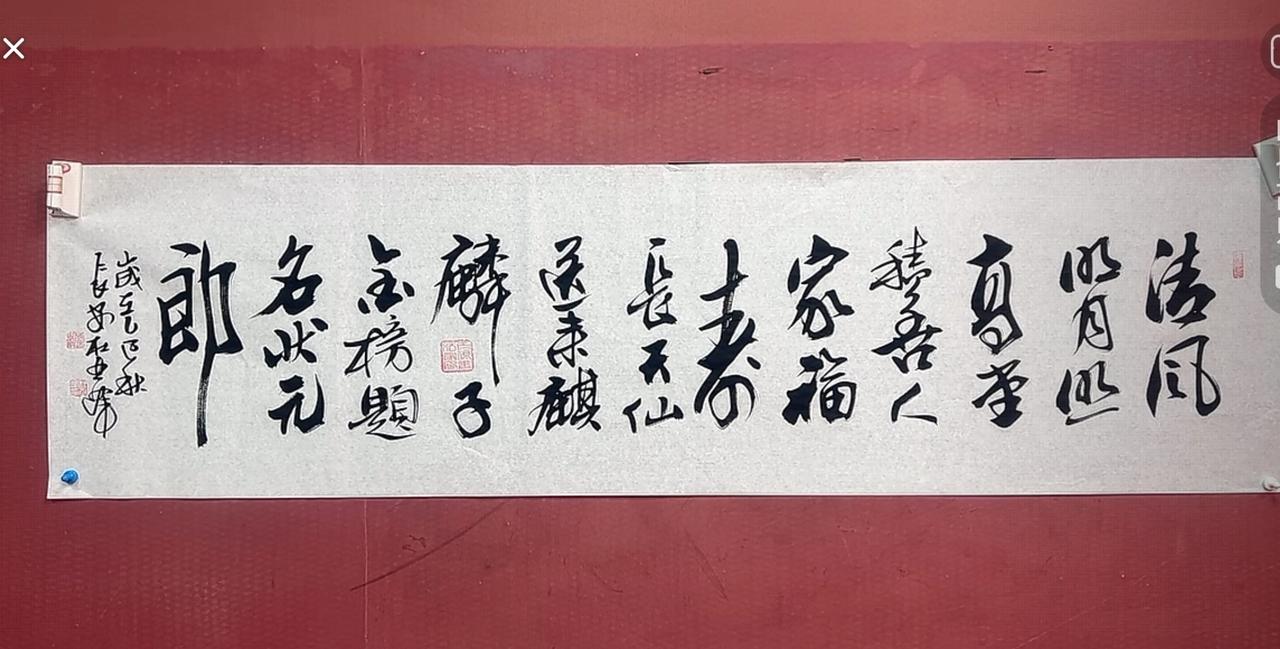 清风
明月照
高堂
积善人
家福
寿
长天仙
送来麒
麟子
金榜题
名状元
郎
岁在乙巳秋
长安